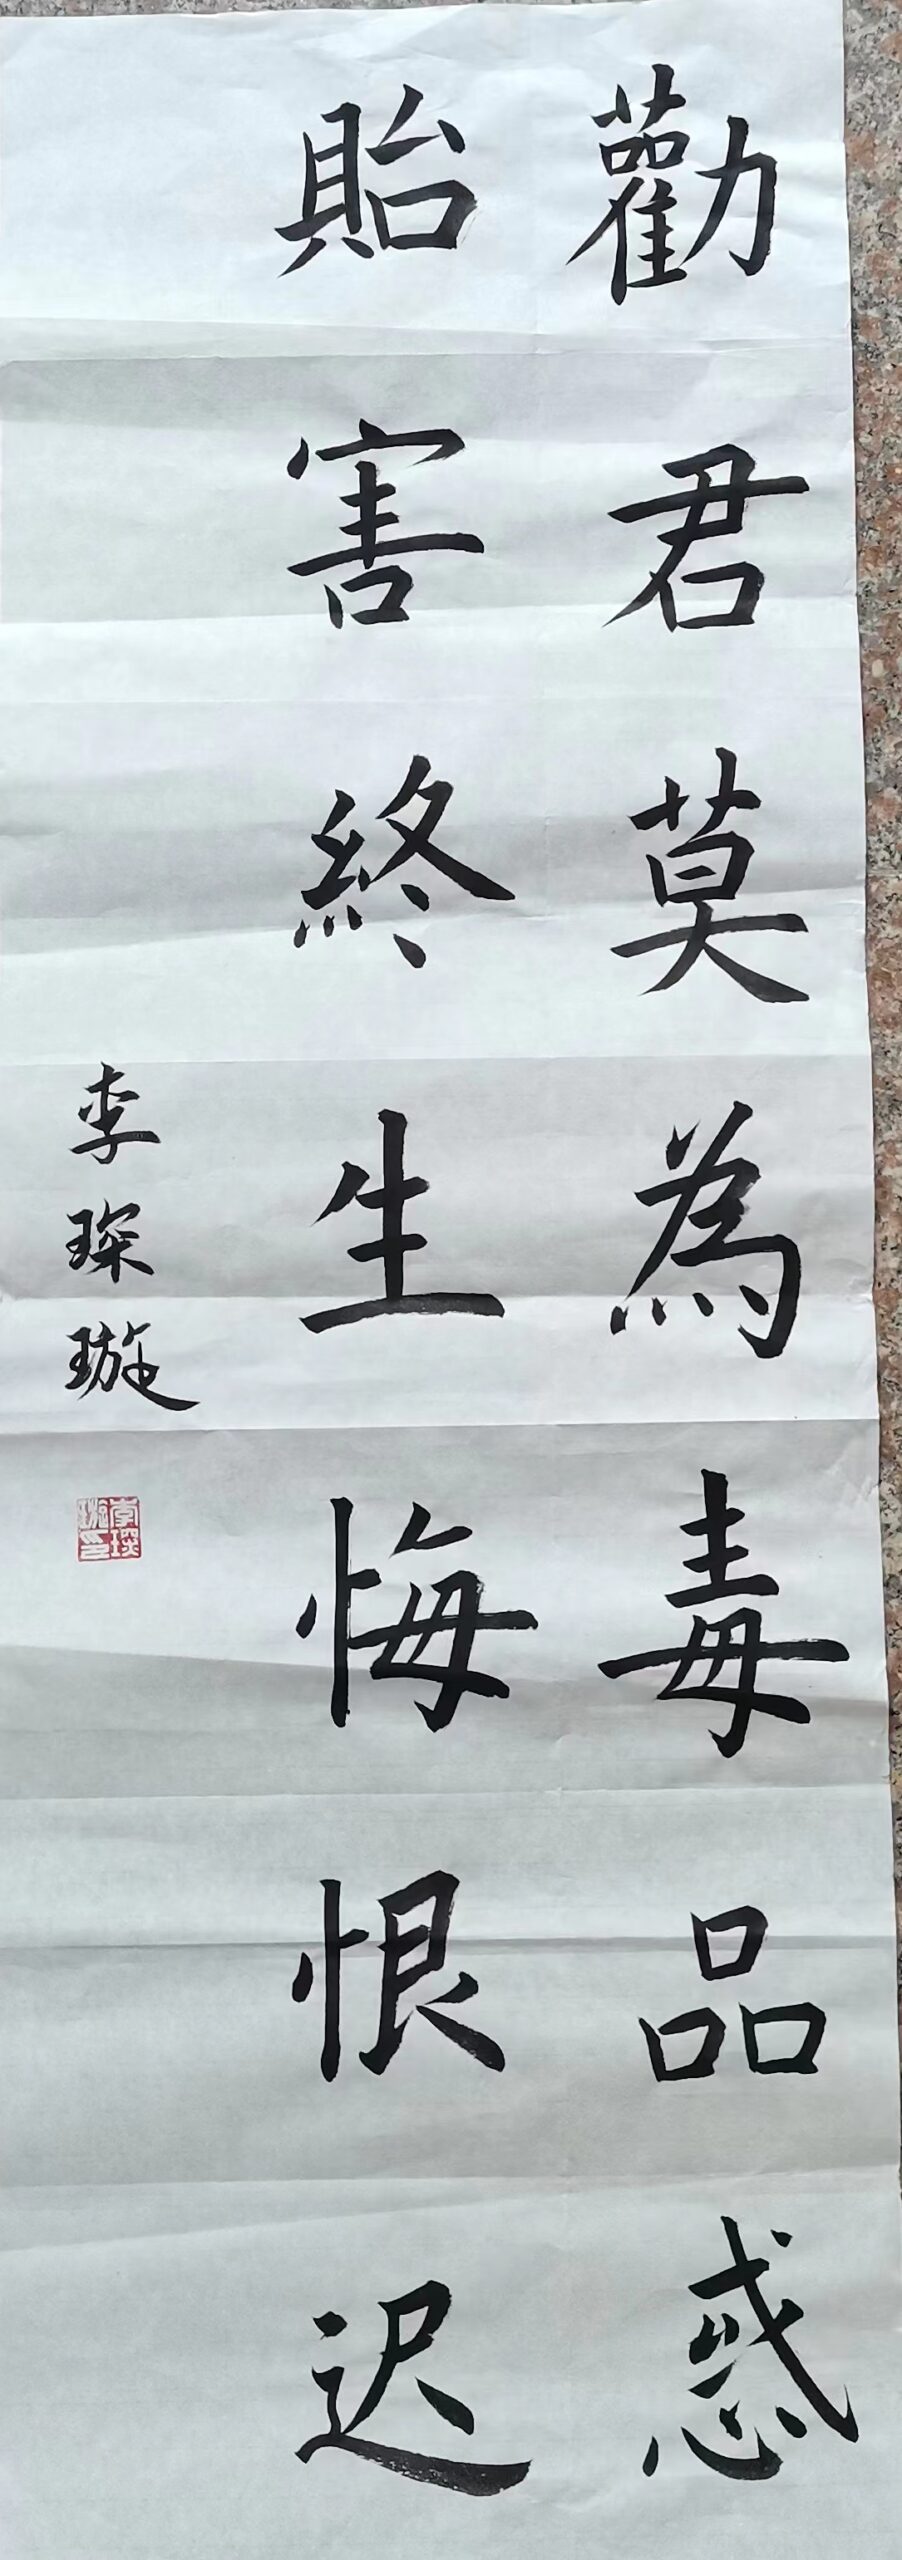 勸君莫為毒品惑
貽害終生悔恨迟
李琛璇
李琛璇印